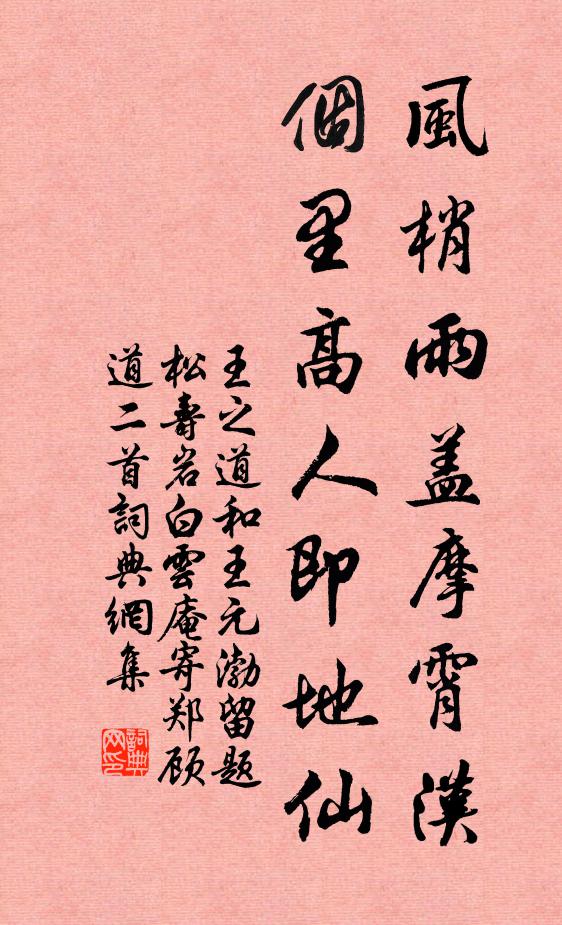 風梢雨盖摩霄漢
個里高人即地仙
王之道和王元渤留题
松壽岩白雲庵寄郑顾
道二首詞典網集
詞典网印